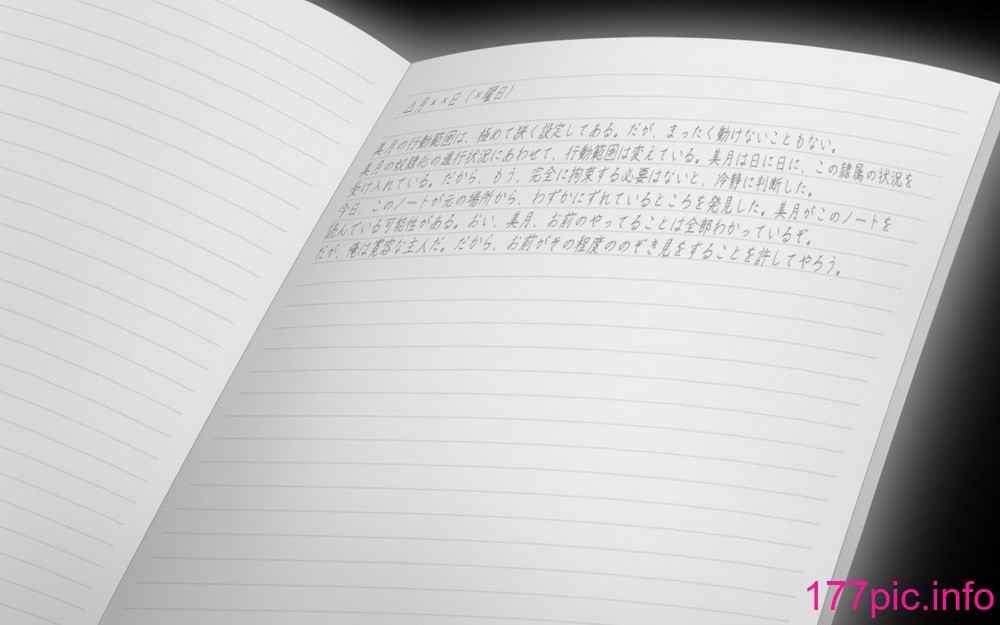 △月××日（×曜日）
美月の行動範囲は、極めて狭く設定してある。だが、まったく動けないこともない。
美月の奴隷化の進行状況にあわせて、行動範囲は変えている。美月は日に日に、この隷属の状況を
受け入れている。だから、もう、完全に拘束する必要はないと、冷静に判断した。
今日、このノートが元の場所から、わずかにずれているところを発見した。美月がこのノートを
読んでいる可能性がある。おい、美月、お前のやってることは全部わかっているぞ。
だが、俺は寛容な主人だ。だから、お前がその程度ののぞき見をすることを許してやろう。
177pic.info